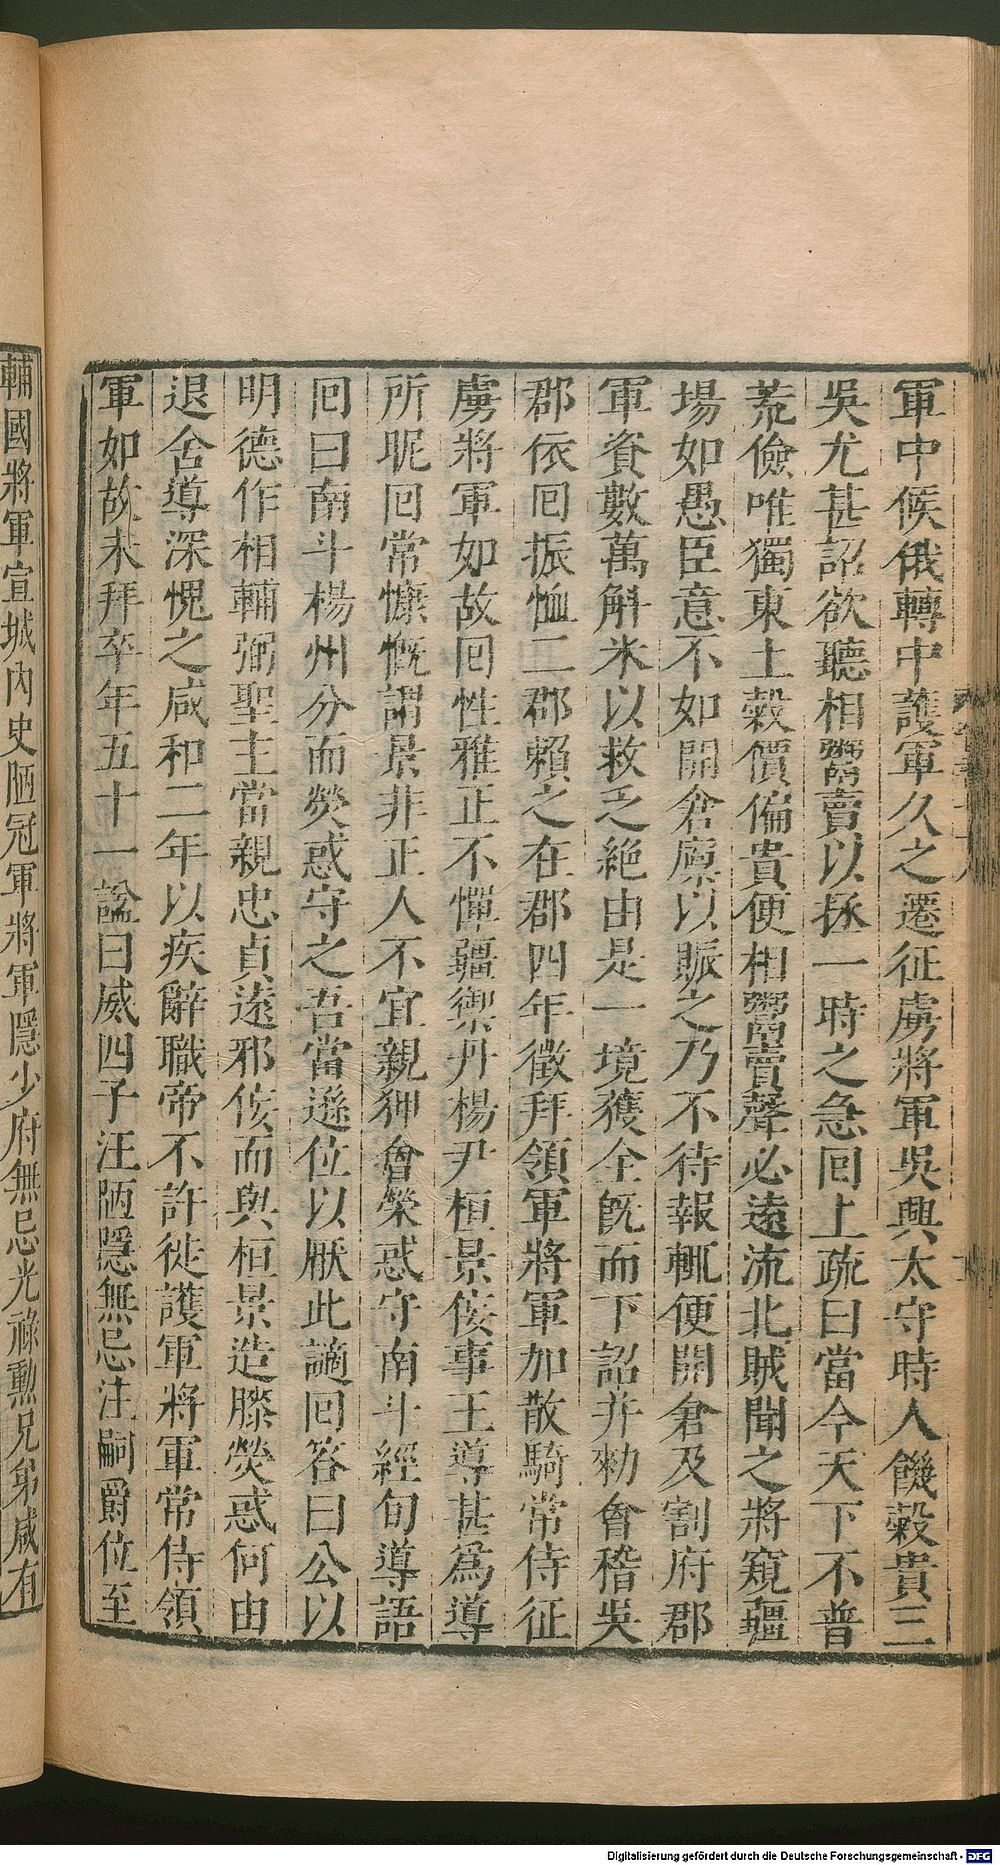 軍中候俄轉中護軍久之遷征虜將軍吳興太守時人饑榖貴三
吳尤甚詔欲聽相鬻賣以拯一時之急囘上疏曰當今天下不普
荒儉唯獨東土榖價偏貴便相鬻賣聲必遠流北賊聞之將窺疆
場如愚臣意不如開倉廪以賑之乃不待報輒便開倉及割府郡
軍資數萬斛米以救乏絶由是一境獲全旣而下詔并勑會稽吳
郡依囘振恤二郡賴之在郡四年徵拜領軍將軍加散騎常侍征
虜將軍如故囘性雅正不憚疆禦丹楊尹桓景佞事王導甚爲導
所昵囘常慷慨謂景非正人不宜親狎會熒惑守南斗經旬導語
囘曰南斗楊州分而熒惑守之吾當遜位以厭此謫囘荅曰公以
明德作相輔弼聖主當親忠貞遠邪佞而與桓景造膝熒惑何由
退舍導深愧之咸和二年以疾辭職帝不許徙護軍將軍常侍領
軍如故未拜卒年五十一諡曰威四子汪陋隱無忌汪嗣爵位至
輔國將軍宣城內史陋冠軍將軍隱少府無忌光祿勲兄弟咸有
Digitalisierung gefördert durch die Deutsche Forschungsgemeinschaft - DFG